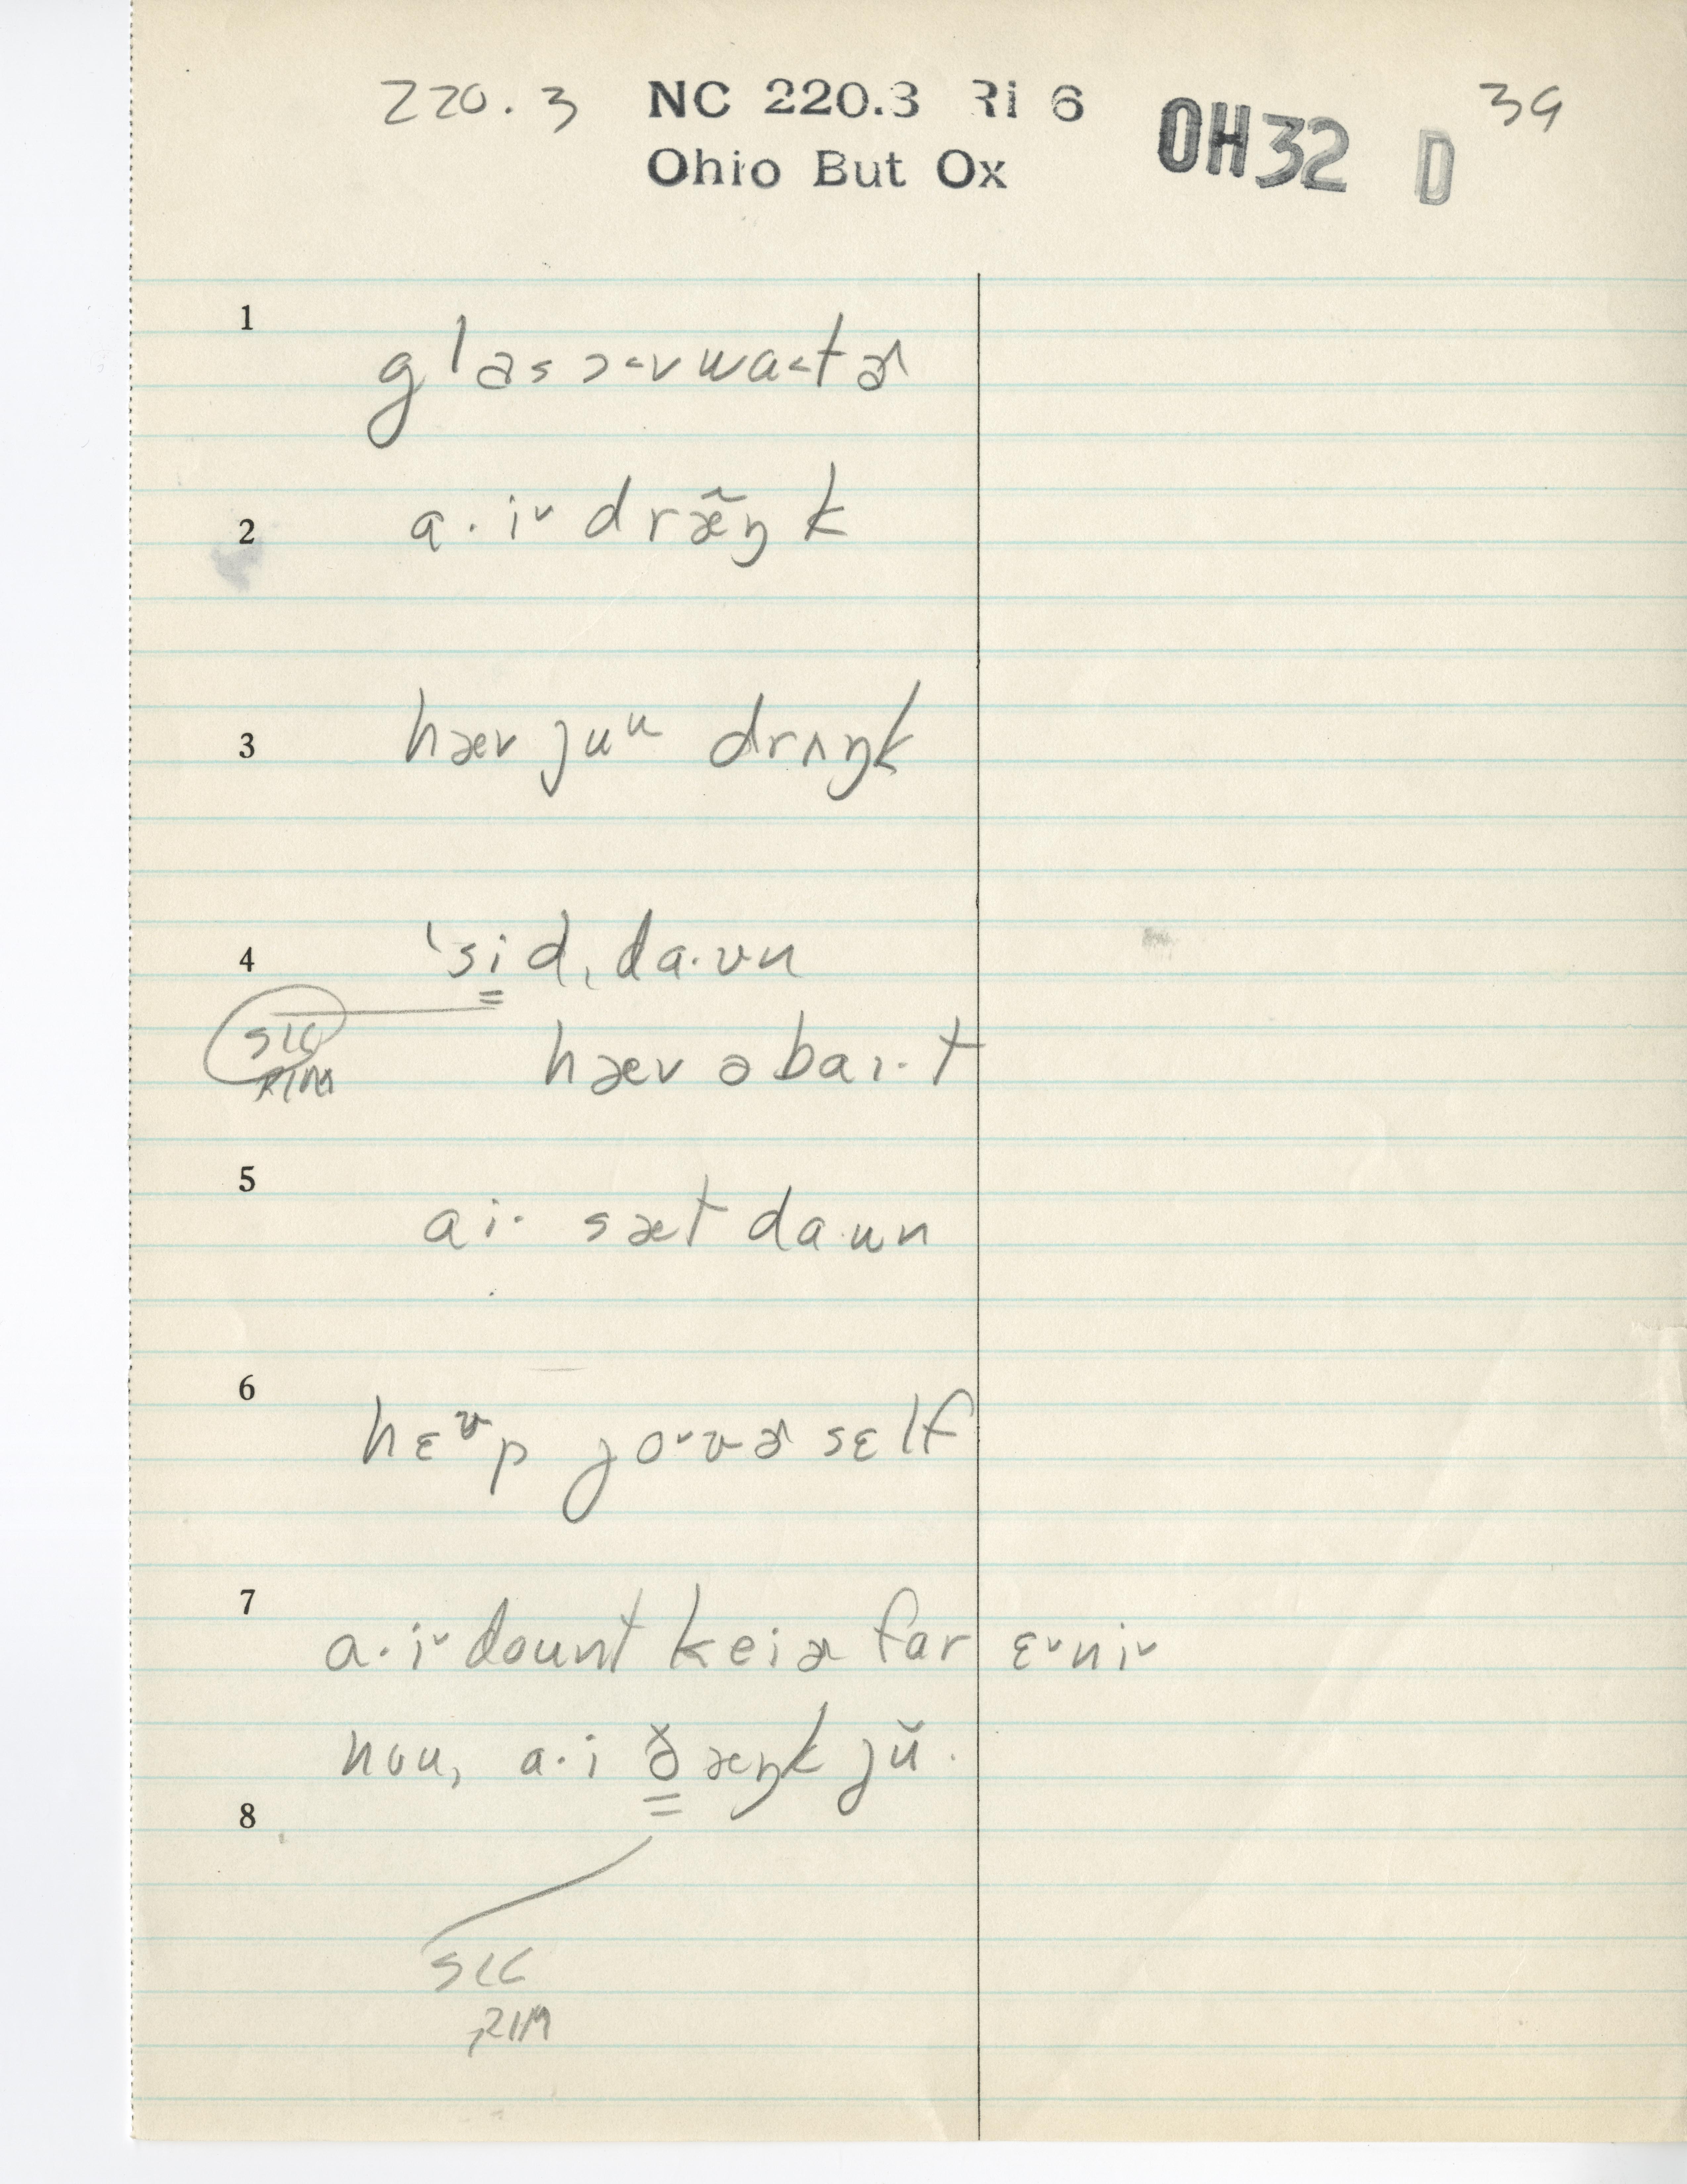 220.3 NC 220.3 Ri 6 OH32 D 39
Ohio But Ox
1
glas ɔ˂v wa˂tɚ
2
a·iˇ dræ̃ŋk
3
hæv juᵘ drʌŋk
4
ˈsid ˌda·ʊn
sic
RIM
hæv ə baɪ·t
5
ai· sæt da·un
6
hɛᶹp joˇʊɚ sɛlf
7
a·iˇ dount keiɚ far ɛˇniˇ
nou, a·i ðæŋk jŭ.
8
sic
RIM